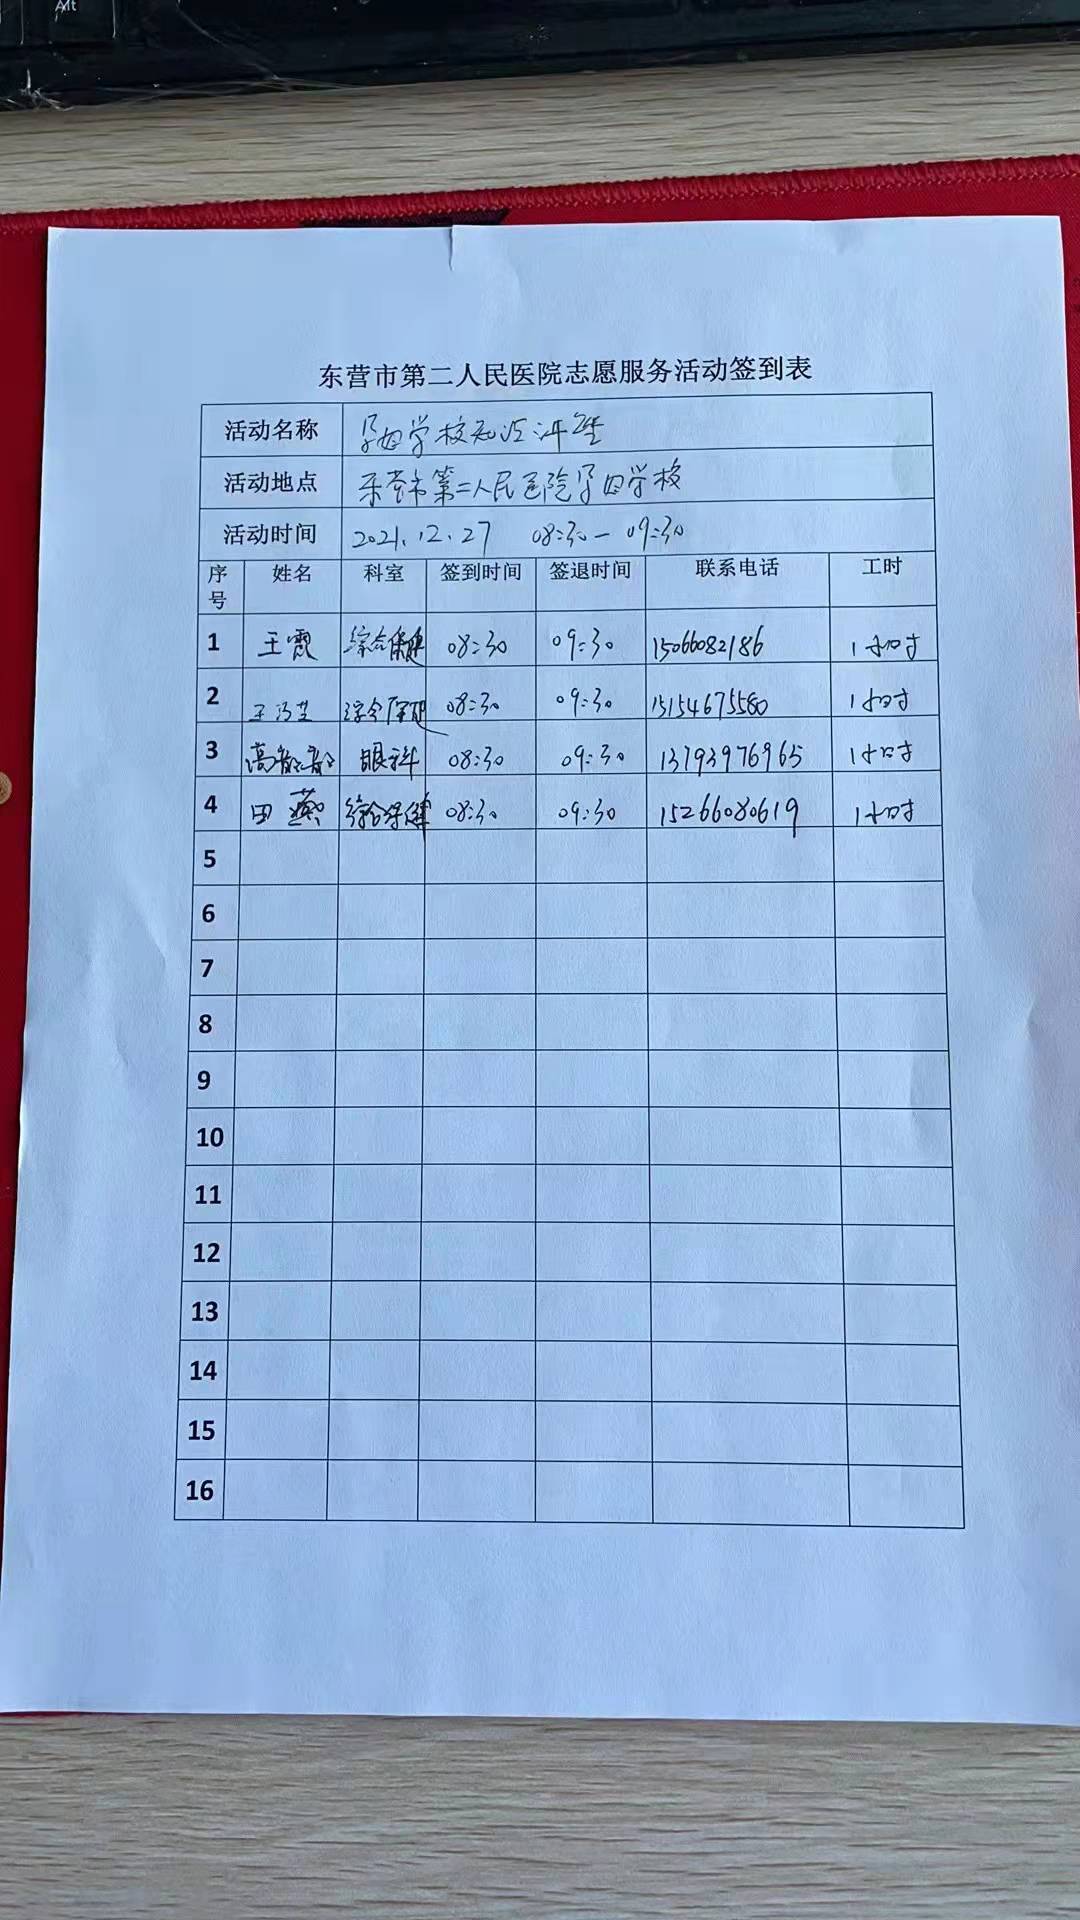 Alt
东营市第二人民医院志愿服务活动签到表
活动名称 孕妇学校知识讲座
活动地点 东营市第二人民医院孕妇学校
活动时间 2021.12.27 08:30-09:30
序号 姓名 科室 签到时间 签退时间 联系电话 工时
1 王霞 综合保健 08:30 09:30 15066082186 1小时
2 王 综合保健 08:30 09:30 15154675580 1小时
3 高 眼科 08:30 09:30 13793976965 1小时
4 田燕 综合保健 08:30 09:30 15266080619 1小时
5
6
7
8
9
10
11
12
13
14
15
16